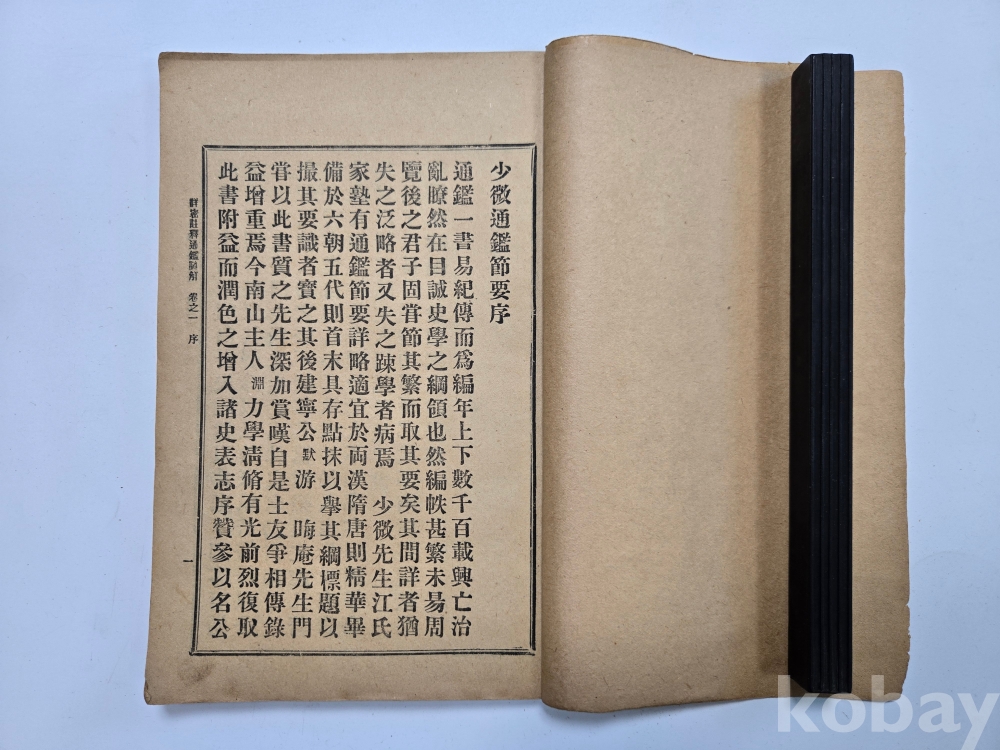 少微通鑑節要序
通鑑一書易紀傳而爲編年上下數千百載興亡治
亂瞭然在目誠史學之綱領也然編帙甚繁未易周
覽後之君子固甞節其繁而取其要矣其間詳者猶
失之泛略者又失之踈學者病焉 少微先生江氏
家塾有通鑑節要詳略適宜於兩漢隋唐則精華畢
備於六朝五代則首末具存點抹以擧其綱標題以
撮其要識者寶之其後建寧公 默 游 晦庵先生門
甞以此書質之先生深加賞嘆自是士友爭相傳錄
益增重焉今南山主人 淵 力學淸脩有光前烈復取
此書附益而潤色之增入諸史表志序贊參以名公
詳密註釋通鑑諺解 卷之一 序
一
kobay